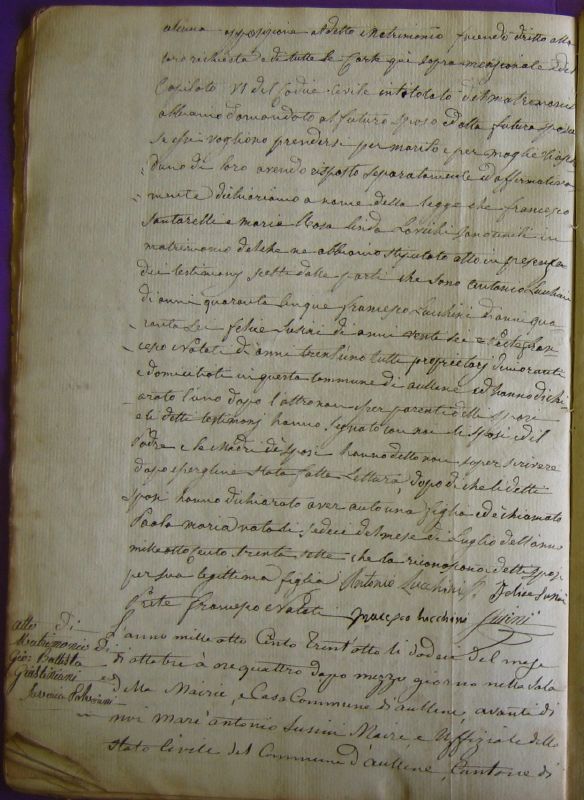 alcuna opposizione al detto Matrimonio, facendo dritto alla
loro richiesta e di tutte le carte qui sopra menzionate e del
Capitolo VI del Codice civile intitolato del matrimonio
abbiamo domandato al futuro sposo e alla futura sposa
se essi vogliono prendersi per marito e per moglie
duno di loro avendo risposto separatamente ed affirmativa
mente dichiariamo a nome della legge che francesco
Santarelli e maria Rosa Linda sono uniti in
matrimonio del che ne abbiamo stipulato atto in presenza
dei testimonj scelti dalle parti che sono Antonio Lucchini
di anni quaranta cinque francesco Lucchini di anni qua
ranta sei felice Susini di anni venti sei e Prete fran
cesco Natali di anni trentuno tutti proprietarj dimoranti
e domiciliati in questa commune di aullene ed hanno dichi
arato l'uno dopo l'altro non esser parenti delli sposi
e li detti testimonj hanno segnato con noi li sposi ed il
Padre e la Madre de sposi hanno detto non saper scrivere
dopo stata fatta Lettura, dopo di che li detti
sposi hanno dichiarato aver auto una figlia ed è chiamata
Paola maria nata li sedeci del mese di Luglio dell'anno
mille otto cento trenta sette che la riconoscono detti sposi
per sua legittima figlia Antonio Lucchini felice Susini
Prete francesco Natali francesco lucchini Susini
atto di
Matrimonio di
Gio: Battista
Giustiniani
e
L'anno mille otto Cento Trent'otto li dodeci del mese
di ottobre à ore quattro dopo mezzo giorno nella Sala
della Mairie, e Casa Commune di aullene, avanti di
noi Marc'antonio Susini Maire e Uffiziale dello
Stato Civile del Commune d'aullene, Cantone di